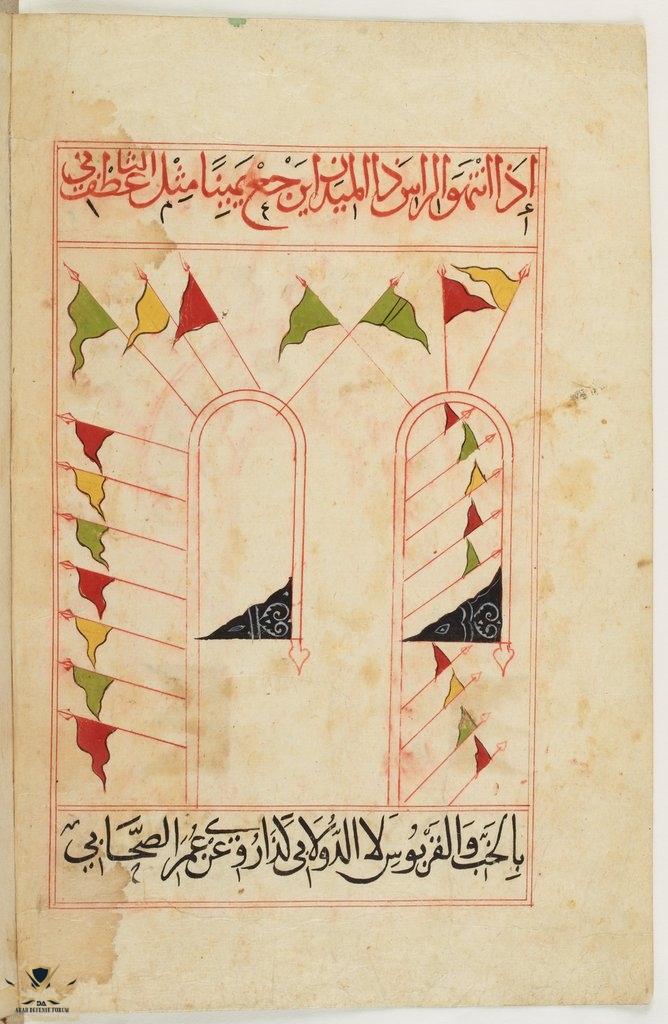 إِذَا انْتَهَوَا الرَاسَ ذَا المَيدَانِ ارْجِعْ يَمِينًا مِثْلَ عَطْفِ الثَانِي
بِالجَنْبِ وَالقَرَبُوسِ لَا الدُّولَابِي كَذَا رُوِيْ عَن عُمَرَ الصَّحَابِي
DA
ARAB DEFENSE FORUM